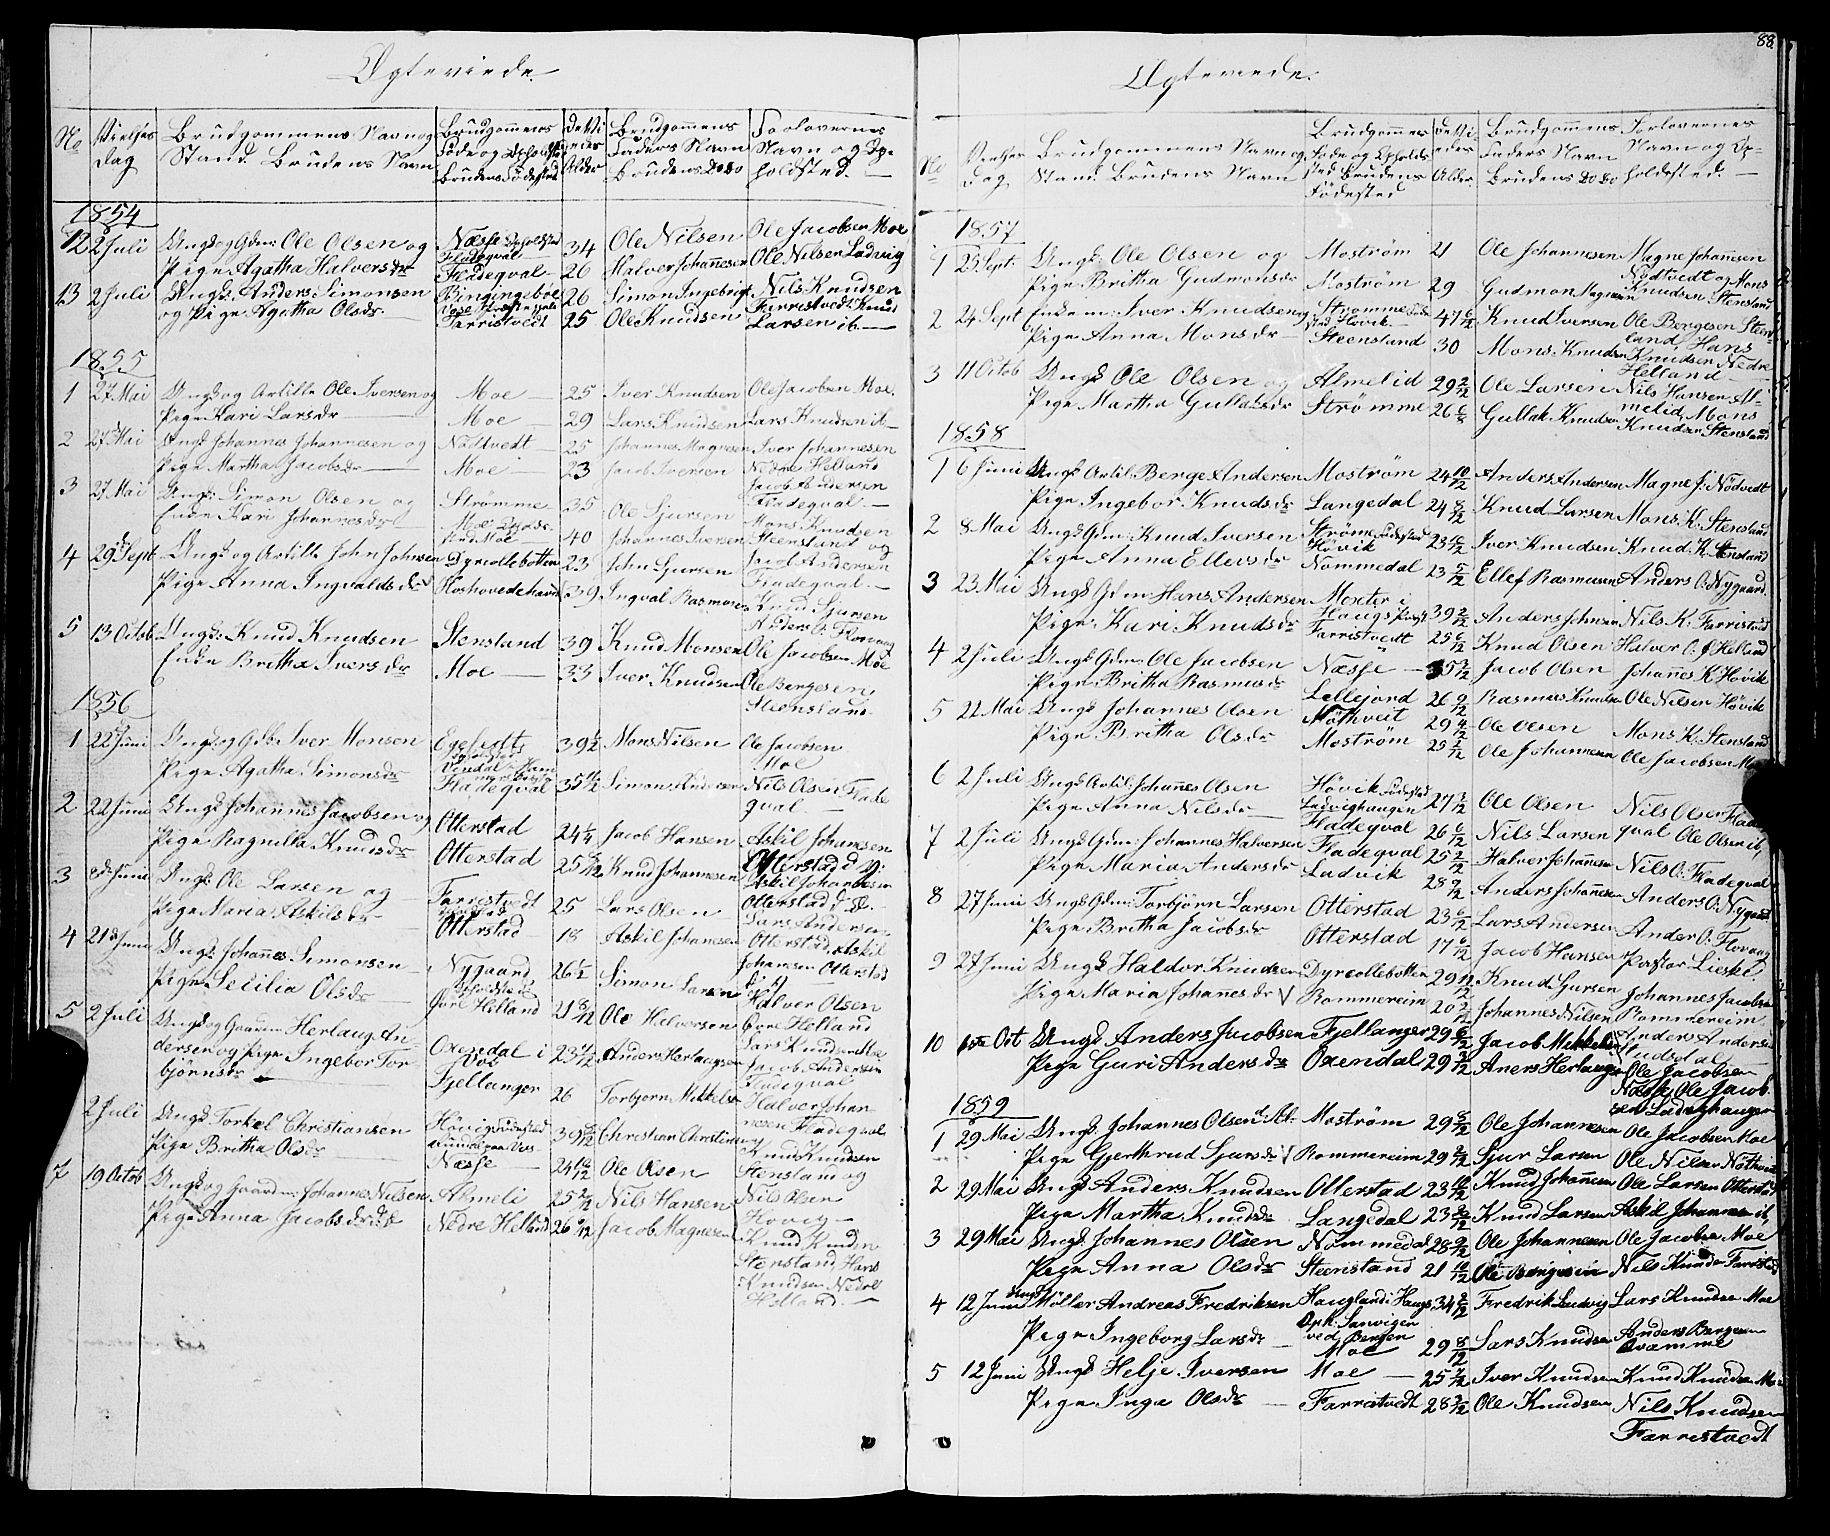 88.
Ægteviede.
No Vielses Dag Brudgommens Navn og Stand. Brudens Navn Brudgommens Føde og Opholdsted Brudens Fødested De Viedes Alder Brudgommens Faders Navn Brudens Do Do Forlovernes Navn og Opholdsted.
1854
12 2 Juli Ungk og Gdm: Ole Olsen og Næsse Opholdsted Fladeqval 34 Ole Nilsen Ole Jacobsen Moe
Pige Agatha Halversdr Fladeqval 26 Halver Johannesen Ole Nilsen Ladvig
13 2 Juli Ungk: Anders Simonsen Bingingebøe 26 Simon Ingebrigt Nils Knudsen
og Pige Agatha Olsdr. Farristvedt 25 Ole Knudsen Farrestvedt Knud Larsen ib.
1855
1 27 Mai Ungk og Artille Ole Iversen og Moe 25 Iver Knudsen Ole Jacobsen Moe.
Pige Kari Larsdr Moe 29 Lars Knudsen Lars Knudsen ib
2 27 Mai Ungk Johannes Johannesen og Nødtvedt 25 Johannes Magnesen Iver Johannesen
Pige Martha Jacobsdr Moe 23 Jacob Iversen Nedre Helland
3 27 Mai Ungk: Simon Olsen og Strømme 35 Ole Sjursen Jacob Andersen Fladeqval
Enke Kari Johannesdr Moe Opholdsted Moe 40 Johannes Iversen Mons Knudsen Steensland og
4 29 Sept Ungk og Artille John Johnsen Dyrcollebotten 23 John Gjursen Jacob Andersen
Pige Anna Ingvaldsdr Hoshovedehavn 39 Ingval Rasmusen Fladeqval
5 13 Octob Ungk: Knud Knudsen Stensland 39 Knud Monsen Knud Sjursen Anders O: Flovaag Ole Jacobsen Moe
Enke Britha Iversdr Moe 33 Iver Knudsen Ole Bergesen, Steensland.
1856
1 22 Juni Ungk og Gdb: Iver Monsen Egeledtt 39 1/2 Mons Nilsen Ole Jacobsen Moe
Pige Agatha Simonsdr Fladeqval 35 11/12 Simon Andersen Nils Olsen Fladeqval
2 22 Juni Ungk Johannes Jacobsen og Otterstad 24 1/2 Jacob Hansen Askil Johannesen
Pige Ragnilla Knudsdr Otterstad 25 Knud Johannesen Otterstad
3 Juni Ungk: Ole Larsen og Farristvedt 25 Lars Olsen Askil Johannesen Otterstad
Pige Maria Askilsdr Otterstad 18 Askil Johannesen Lars Andersen
4 21 Juni Ungk: Johannes Simonsen Nygaard 26 1/2 Simon Larsen Otterstad, Askil Johannesen Otterstad
Pige Secilia Olsdr Øvre Helland 21 8/12 Ole Halversen Halver Olsen Øvre Helland
5 2 Juli Ungk og Gaardm Herlaug Andersen og Pige Ingebor Torbjørnsdr Oxendal i Vos 23 4/12 Anders Herlaugsen Lars Knudsen Moe Jacob Andersen Fladeqval
Fjellanger 26 Torbjørn Mikkelsen
2 Juli Ungk Torkel Christiansen Høvig 35 Christian Christiansen Halver Johannesen Fladeqval
Pige Britha Olsdr Næsse 24 10/12 Ole Olsen Knud Knudsen Stensland og
7 19 Octob Ungk og Gaardm: Johannes Nilsen Almeli 25 2/12 Nils Hansen Nils Olsen Høvig
Pige Anna Jacobsdr Nedre Helland 26 9/12 Jacob Magnesen Knud Knudsn Stensland, Hans Knudsen Nedre Helland.
Ægteviede.
No Vielses Dag Brudgommens Navn og Stand Brudens Navn Brudgommens Føde og Opholdsted Brudens Fødested De Viedes Alder. Brudgommens Faders Navn Brudens Do Do Forlovernes Navn og Opholdsted.
1857
1 25 Sept. Ungk: Ole Olsen og Mostrøm 21 Ole Johannesen Magne Johannesen
Pige Britha Gudmonsdr Mostrøm 29 Gudmon Magnesen Nødtvedt og Mons Knudsen Stensland
2 24 Sept Enkem: Iver Knudsen og Strømme Høvik 47 6/12 Knud Iversen Ole Bergesen Steensland, Hans
Pige Anna Monsdr Steensland 30 Mons Knudsen Knudsen Nedre Helland
3 11 Octob Ungk Ole Olsen og Almelid 29 2/12 Ole Larsen Nils Hansen Almelid, Mons
Pige Martha Gullaksdr Strømme 26 6/12 Gullak Knudsen Knudsen Stensland
1858
1 6 Juni Ungk Artil: Berge Andersen Mostrøm 24 10/12 Anders Andersen Magne J: Nødvedt
Pige Ingebor Knudsdr Langedal 24 8/12 Knud Larsen Mons K: Stensland
2 8 Mai Ungk Gdm: Knud Iversen Strøme Fødested Høvik 23 6/12 Iver Knudsen Knud K: Stensland
Pige Anna Ellevsdr Nommedal 23 5/12 Ellef Rasmusen Anders O: Nygaard
3 23 Mai Ungk Gdm: Hans Andersen Moxter i Haugs Præst 39 2/12 Anders Johnsen Nils K: Farristvedt
Pige: Kari Knudsdr Farristvedt 25 6/12 Knud Olsen Halver O: Ø Helland
4 2 Juli Ungk Gdm: Ole Jacobsen Næsse 35 3/12 Jacob Olsen Johannes K Høvik
Pige Britha Rasmusdr Lellejord 26 9/12 Rasmus Knudsen Ole Nilsen Høvik
5 22 Mai Ungk Johannes Olsen Nøttveit 29 4/12 Ole Olsen Mons K: Stensland
Pige Britha Olsdr Mostrøm 25 2/12 Ole Johannesen Ole Jacobsen Moe
6 2 Juli Ungk Artil: Johannes Olsen Høvik Fødested Ladvighaugen 27 3/12 Ole Olsen Nils Olsen Fladeqval
Pige Anna Nilsdr Fladeqval 26 6/12 Nils Larsen Ole Olsen ib,
7 2 Juli Ungk Gdm: Johannes Halversen Fladeqval 25 2/12 Halver Johannesen Nils O: Fladeqval
Pige Maria Andersdr Ladvik 28 9/12 Anders Johannesen Anders O: Nygaard
8 27 Juni Ungk Gdm: Torbjørn Larsen Otterstad 23 6/12 Lars Andersen Ander O: Flovaag
Pige Britha Jacobsdr Otterstad 17 6/12 Jacob Hansen Pastor Lieske
9 27 Juni Ungk Haldor Knudsen Dyrcollebotten 29 11/12 Knud Gursen Johannes Jacobsen
Pige Maria Johannesdr Rommereim 20 3/12 Johannes Nilsen Rommereim
10 1ste Oct Ungk Anders Jacobsen Fjellanger 29 6/12 Jacob Mikkelsen Anders Andersen
Pige Guri Andersdr Oxendal 29 3/12 Aners Herlaugsen Ole Jacobsen Næsse, Ole Jacobsen Ladvighaugen
1859
1 29 Mai Ungk Johannes Olsen Mostrøm 29 8/12 Ole Johannesen Ole Jacobsen Moe
Pige Gjerthrud Sjursdr Rommereim 29 8/12 Sjur Larsen Ole Nilsen Nøthveit
2 29 Mai Ungk Anders Knudsen Otterstad 23 10/12 Knud Johannesen Ole Larsen Otterstad
Pige Martha Knudsdr Langedal 23 8/12 Knud Larsen Askil Johannesen ib,
3 29 Mai Ungk: Johannes Olsen Nommedal 28 9/12 Ole Johannesen Ole Jacobsen Moe
Pige Anna Olsdr Steensland 21 10/12 Ole Bergesen Nils Knudsn Farristvedt
4 12 Juni Ungk Møller Andreas Fredriksen Haugland i Haugs Opb: Sanvigen ved Bergen 34 2/12 Fredrik Ludvig Lars Knudsn Moe
Pige Ingeborg Larsdr Moe 29 8/12 Lars Knudsen Anders Bergesen Qvamme
5 12 Juni Ungk Helje Iversen Moe 25 7/12 Iver Knudsen Knud Knudsen Moe
Pige Inga Olsdr Farristvedt 28 3/12 Ole Knudsen Nils Knudsen Farrestvedt